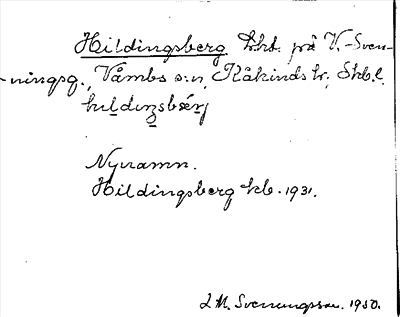 Hildingsberg lht. på V.-Sven-
-ningsg., Våmbs s:n, Kåkinds hr, Skb.l.
hıldıŋsbærj
Nynamn.
Hildingsberg kb. 1931.
L M. Svenungsson. 1950.